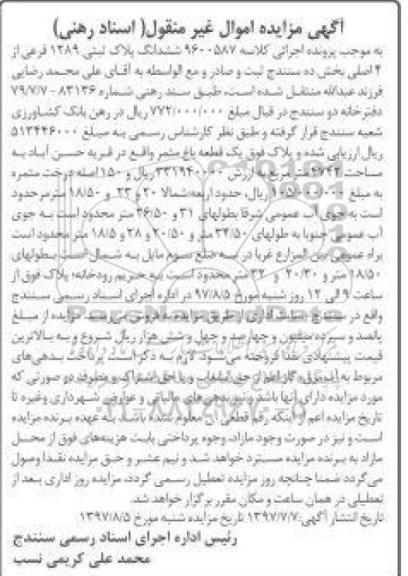 آگهی مزایده اموال غیر منقول( اسناد رهنی)
به موجب پرونده اجرائی کلاسه ۹۶۰۰۵۸۷ ششدانگ پلاک ثبتی ۱۲۸۹ فرعی از
۴ اصلی بخش ده سنندج ثبت و صادر و مع الواسطه به آقای علی محمد رضایی
فرزند عبدالله منتقل شده است، طبق سند رهنی شماره ۸۳۱۳۶ - ۷۹/۷/۷
دفترخانه دو سنندج در قبال مبلغ ۷۷۲/۰۰۰/۰۰۰ ریال در رهن بانک کشاورزی
شعبه سنندج قرار گرفته و طبق نظر کارشناس رسمی به مبلغ ۵۱۳۴۴۶۰۰۰
ریال ارزیابی شده و پلاک فوق یک قطعه باغ مثمر واقع در قریه حسن آباد به
مساحت ۲۷۴۲ متر مربع به ارزش ۳۳۱۹۴۰۰۰۰ ریال و ۱۵۰ اصله درخت مثمره
به مبلغ ریال، حدود اربعه:شمالا ۲۰ و ۲۳ و ۱۸/۵۰ متر مرحدود
است به جوی آب عمومی شرقا بطولهای ۳۱ و ۳۶/۵۰ متر محدود است به جوی
آب عمومی جنوبا به طولهای ۳۴/۵۰ و ۲۰/۵۰ و ۲۸ و ۱۸/۵ متر محدود است
براه عمومی بین المزارع غربا در سه ضلع سوم مایل به شمال است بطولهای
۱۸/۵۰ متر و ۲۰/۳۰ و ۳۲ متر محدود است به حریم رودخانه؛ پلاک فوق از
ساعت ۹ الی ۱۲ روز شنبه مورخ ۹۷/۸/۵ در اداره اجرای اسناد رسمی سنندج
واقع در سنندج از طریق مزایده به فروش می رسد. مزایده از مبلغ
پانصد و سیزده میلیون و چهارصد و چهل و شش هزار ریال شروع و به بالاترین
قیمت پیشنهادی نقدا فروخته می‌شود. لازم به ذکر است پرداخت بدهی‌های
مربوط به آب، برق، گاز اعم از حق انشعاب و یا حق اشتراک و مصرف در صورتی که
مورد مزایده دارای آنها باشد و نیز بدهی های مالیاتی و عوارض شهرداری و غیره تا
تاریخ مزایده اعم از اینکه رقم قطعی آن معلوم شده باشد به عهده برنده مزایده
است و نیز در صورت وجود مازاد، وجوه پرداختی بابت هزینه‌های فوق از محل
مازاد به برنده مزایده مسترد خواهد شد و نیم عشر و حق مزایده نقدا وصول
می‌گردد ضمنا چنانچه روز مزایده تعطیل رسمی گردد، مزایده روز اداری بعد از
تعطیلی در همان ساعت و مکان مقرر برگزار خواهد شد.
تاریخ انتشار آگهی:۱۳۹۷/۷/۷ تاریخ مزایده شنبه مورخ ۱۳۹۷/۸/۵
رئیس اداره اجرای اسناد رسمی سنندج
محمد علی کریمی نسب